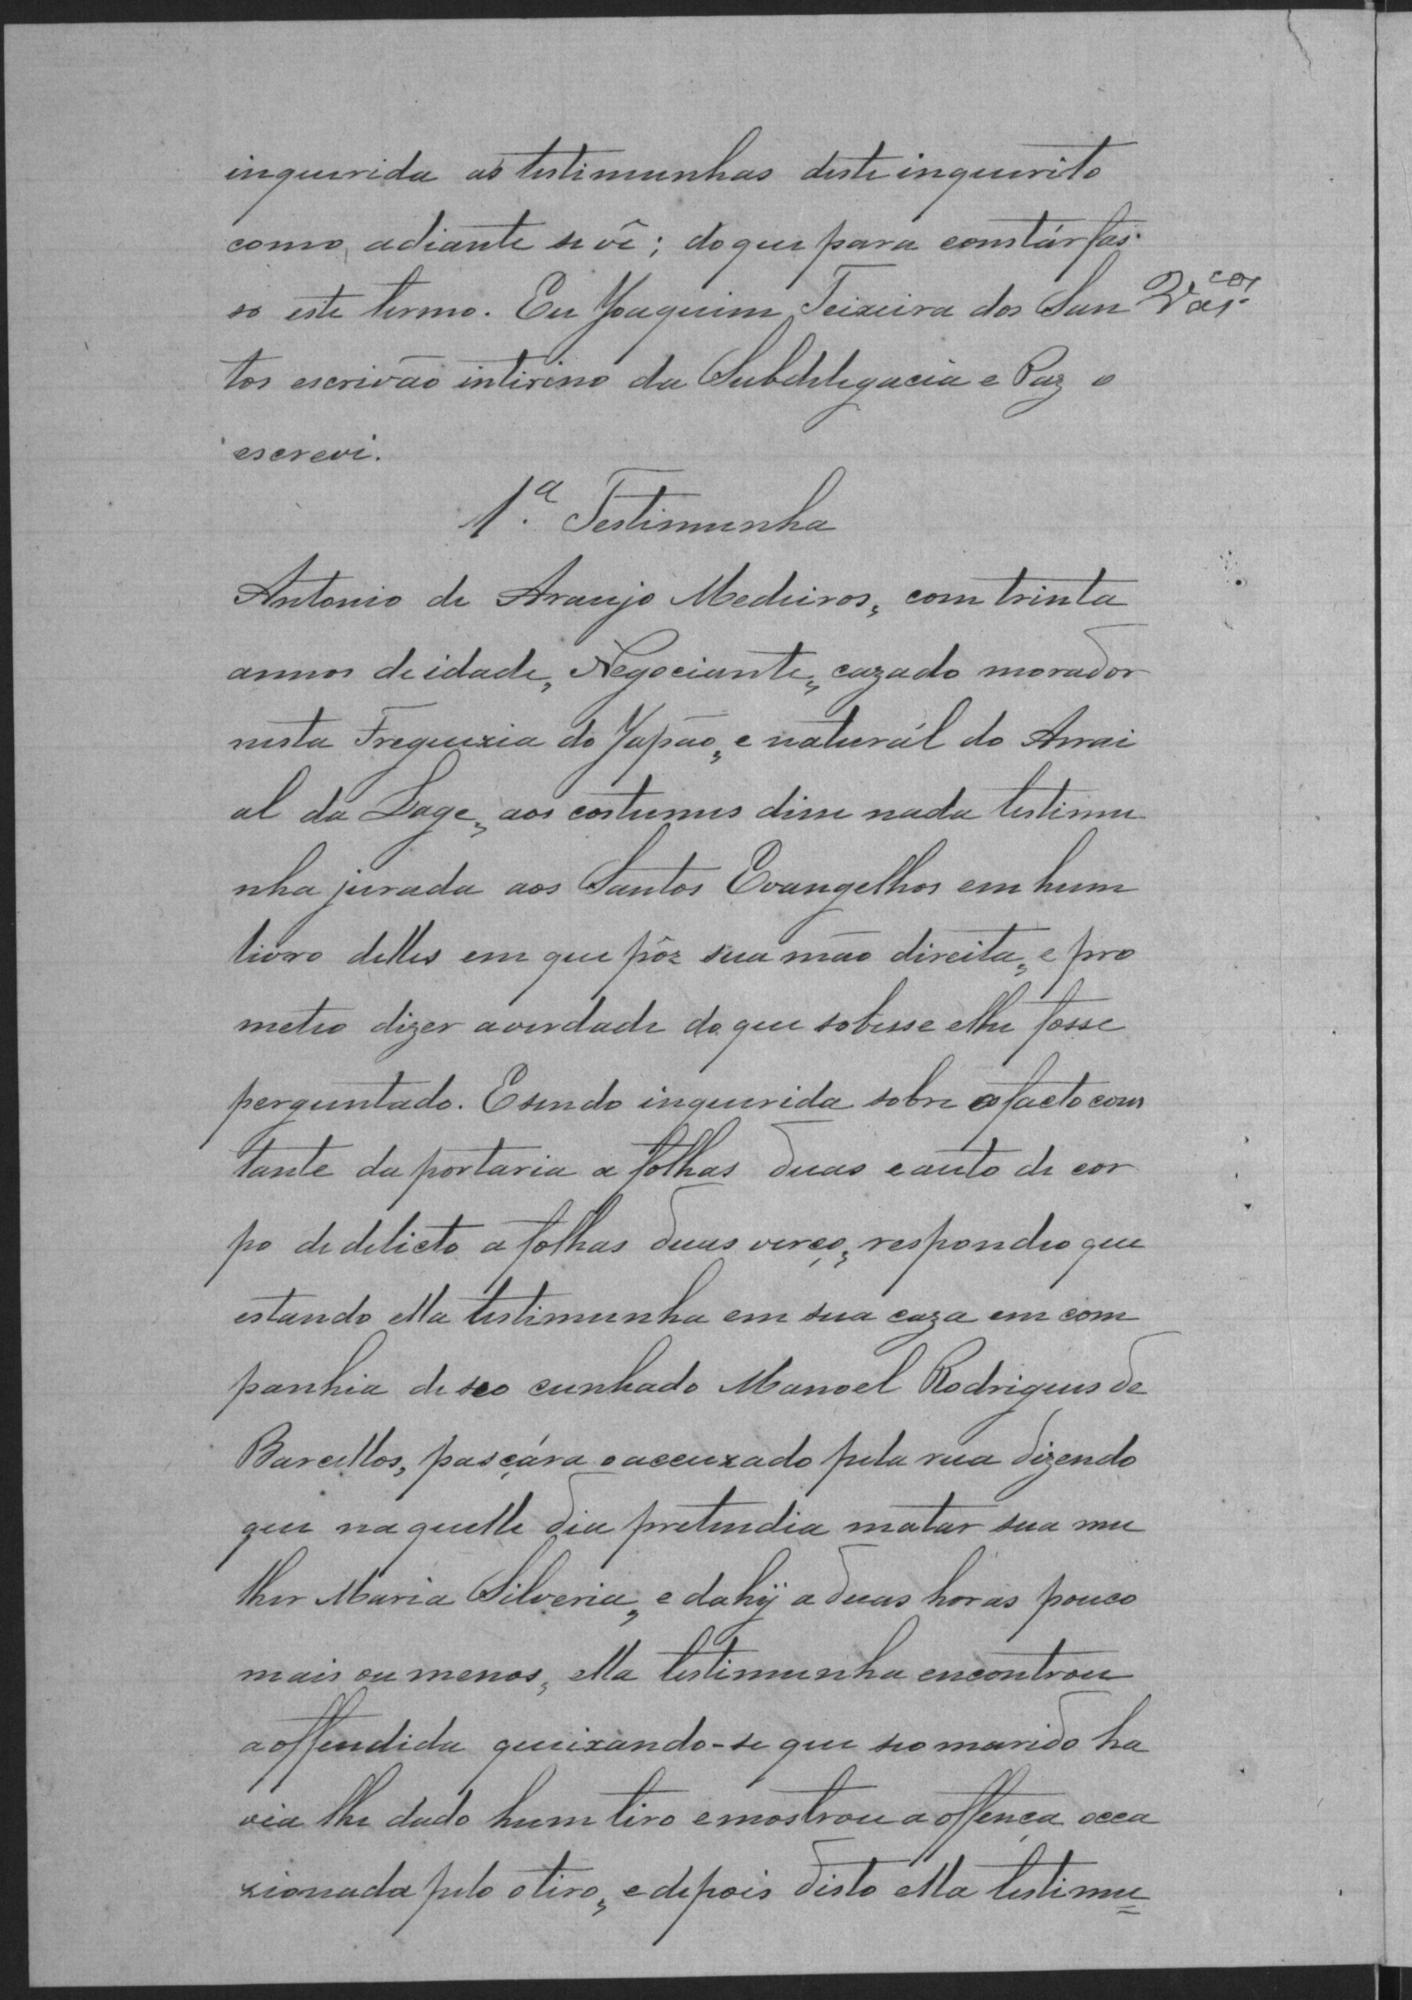 inquerida as testimunhas deste inquerito
como adiante se vê; do que para constár fas
so este termo. Eu Joaquim Teixeira dos San
tos escrivão intirino da Subdelegacia e Paz o
escrevi.
1.ª Testimunha
Antonio de Araujo Medeiros, com trinta
annos de idade, Negociante, cazado morador
nesta Freguezia do Japão, e naturál do Arrai
al da Lage, aos costumes disse nada testimu
nha jurada aos Santos Evangelhos em hum
livro delles em que pôz sua mão direita, e pro
meteo dizer a verdade do que sobesse e lhe fosse
perguntado. E sendo inquerida sobre o facto cons
tante da portaria a folhas duas e auto de cor
po de delicto a folhas duas verço, respondeo que
estando ella testimunha em sua caza em com
panhia de seo cunhado Manoel Rodrigues de
Barcellos, pasçára o accuzado pela rua dizendo
que naquelle dia pretendia matar sua mu
lher Maria Silveria, e dahÿ a duas horas pouco
mais ou menos, ella testimunha encontrou
a offendida queixando-se que seo marido ha
via lhe dado hum tiro e mostrou a offença occa
zionada pelo o tiro, e depois disto ella testimu=